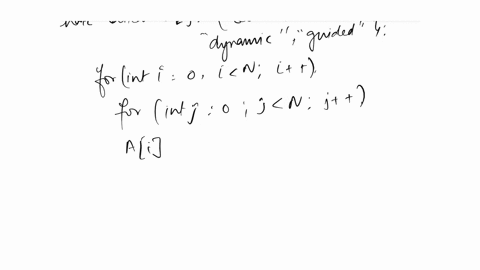 "dynamic", "guided" };
for(int i = 0, i<N; i++)
for (int j = 0 ; j<N; j++)
A[i]